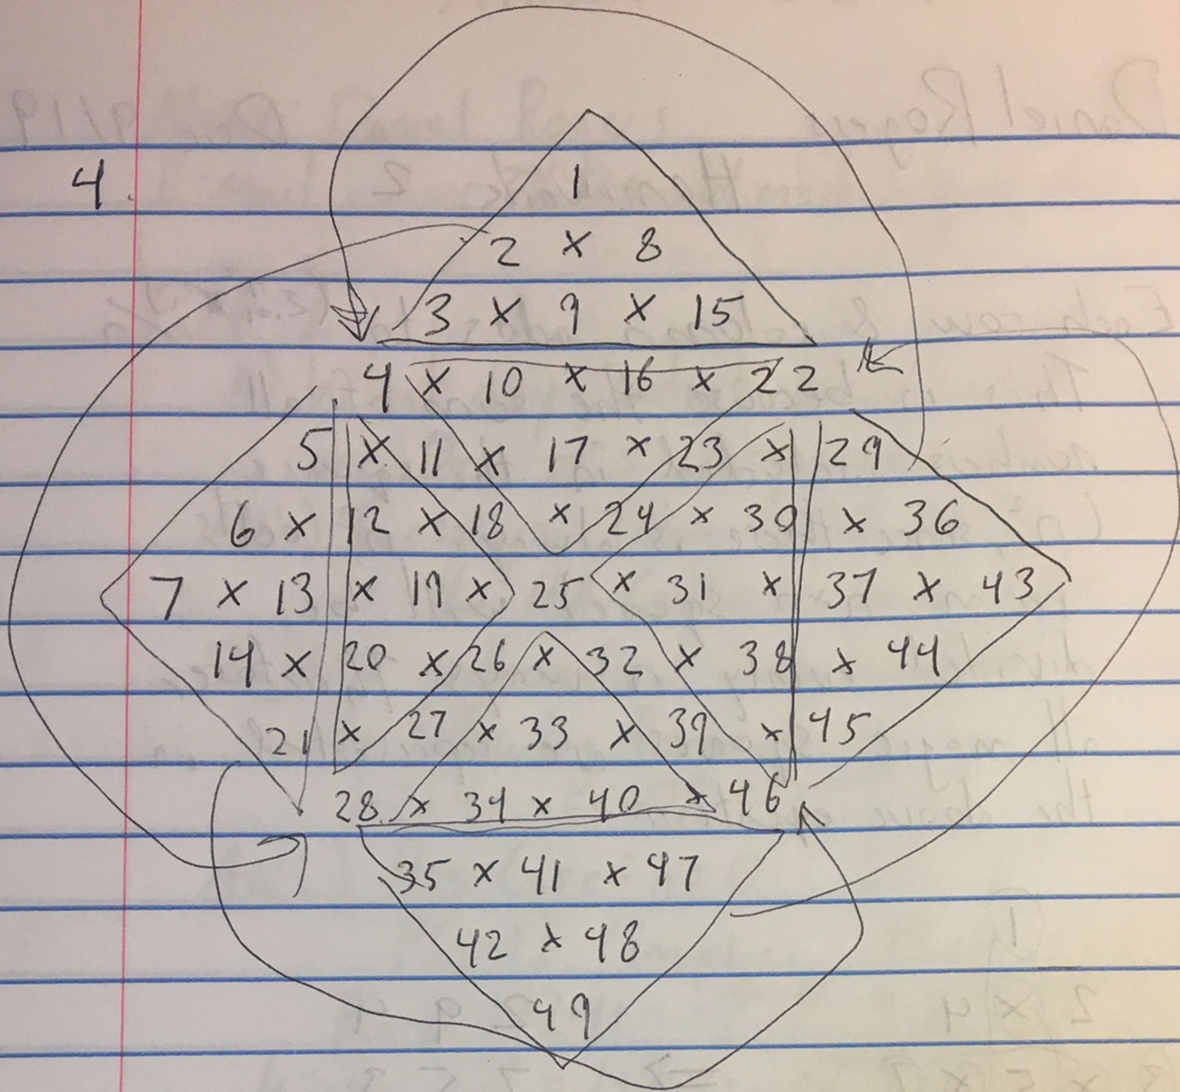 4.
1
2 x 8
3 x 9 x 15
4 x 10 x 16 x 22
5 x 11 x 17 x 23 x 29
6 x 12 x 18 x 24 x 30 x 36
7 x 13 x 19 x 25 x 31 x 37 x 43
14 x 20 x 26 x 32 x 38 x 44
21 x 27 x 33 x 39 x 45
28 x 34 x 40 x 46
35 x 41 x 47
42 x 48
49